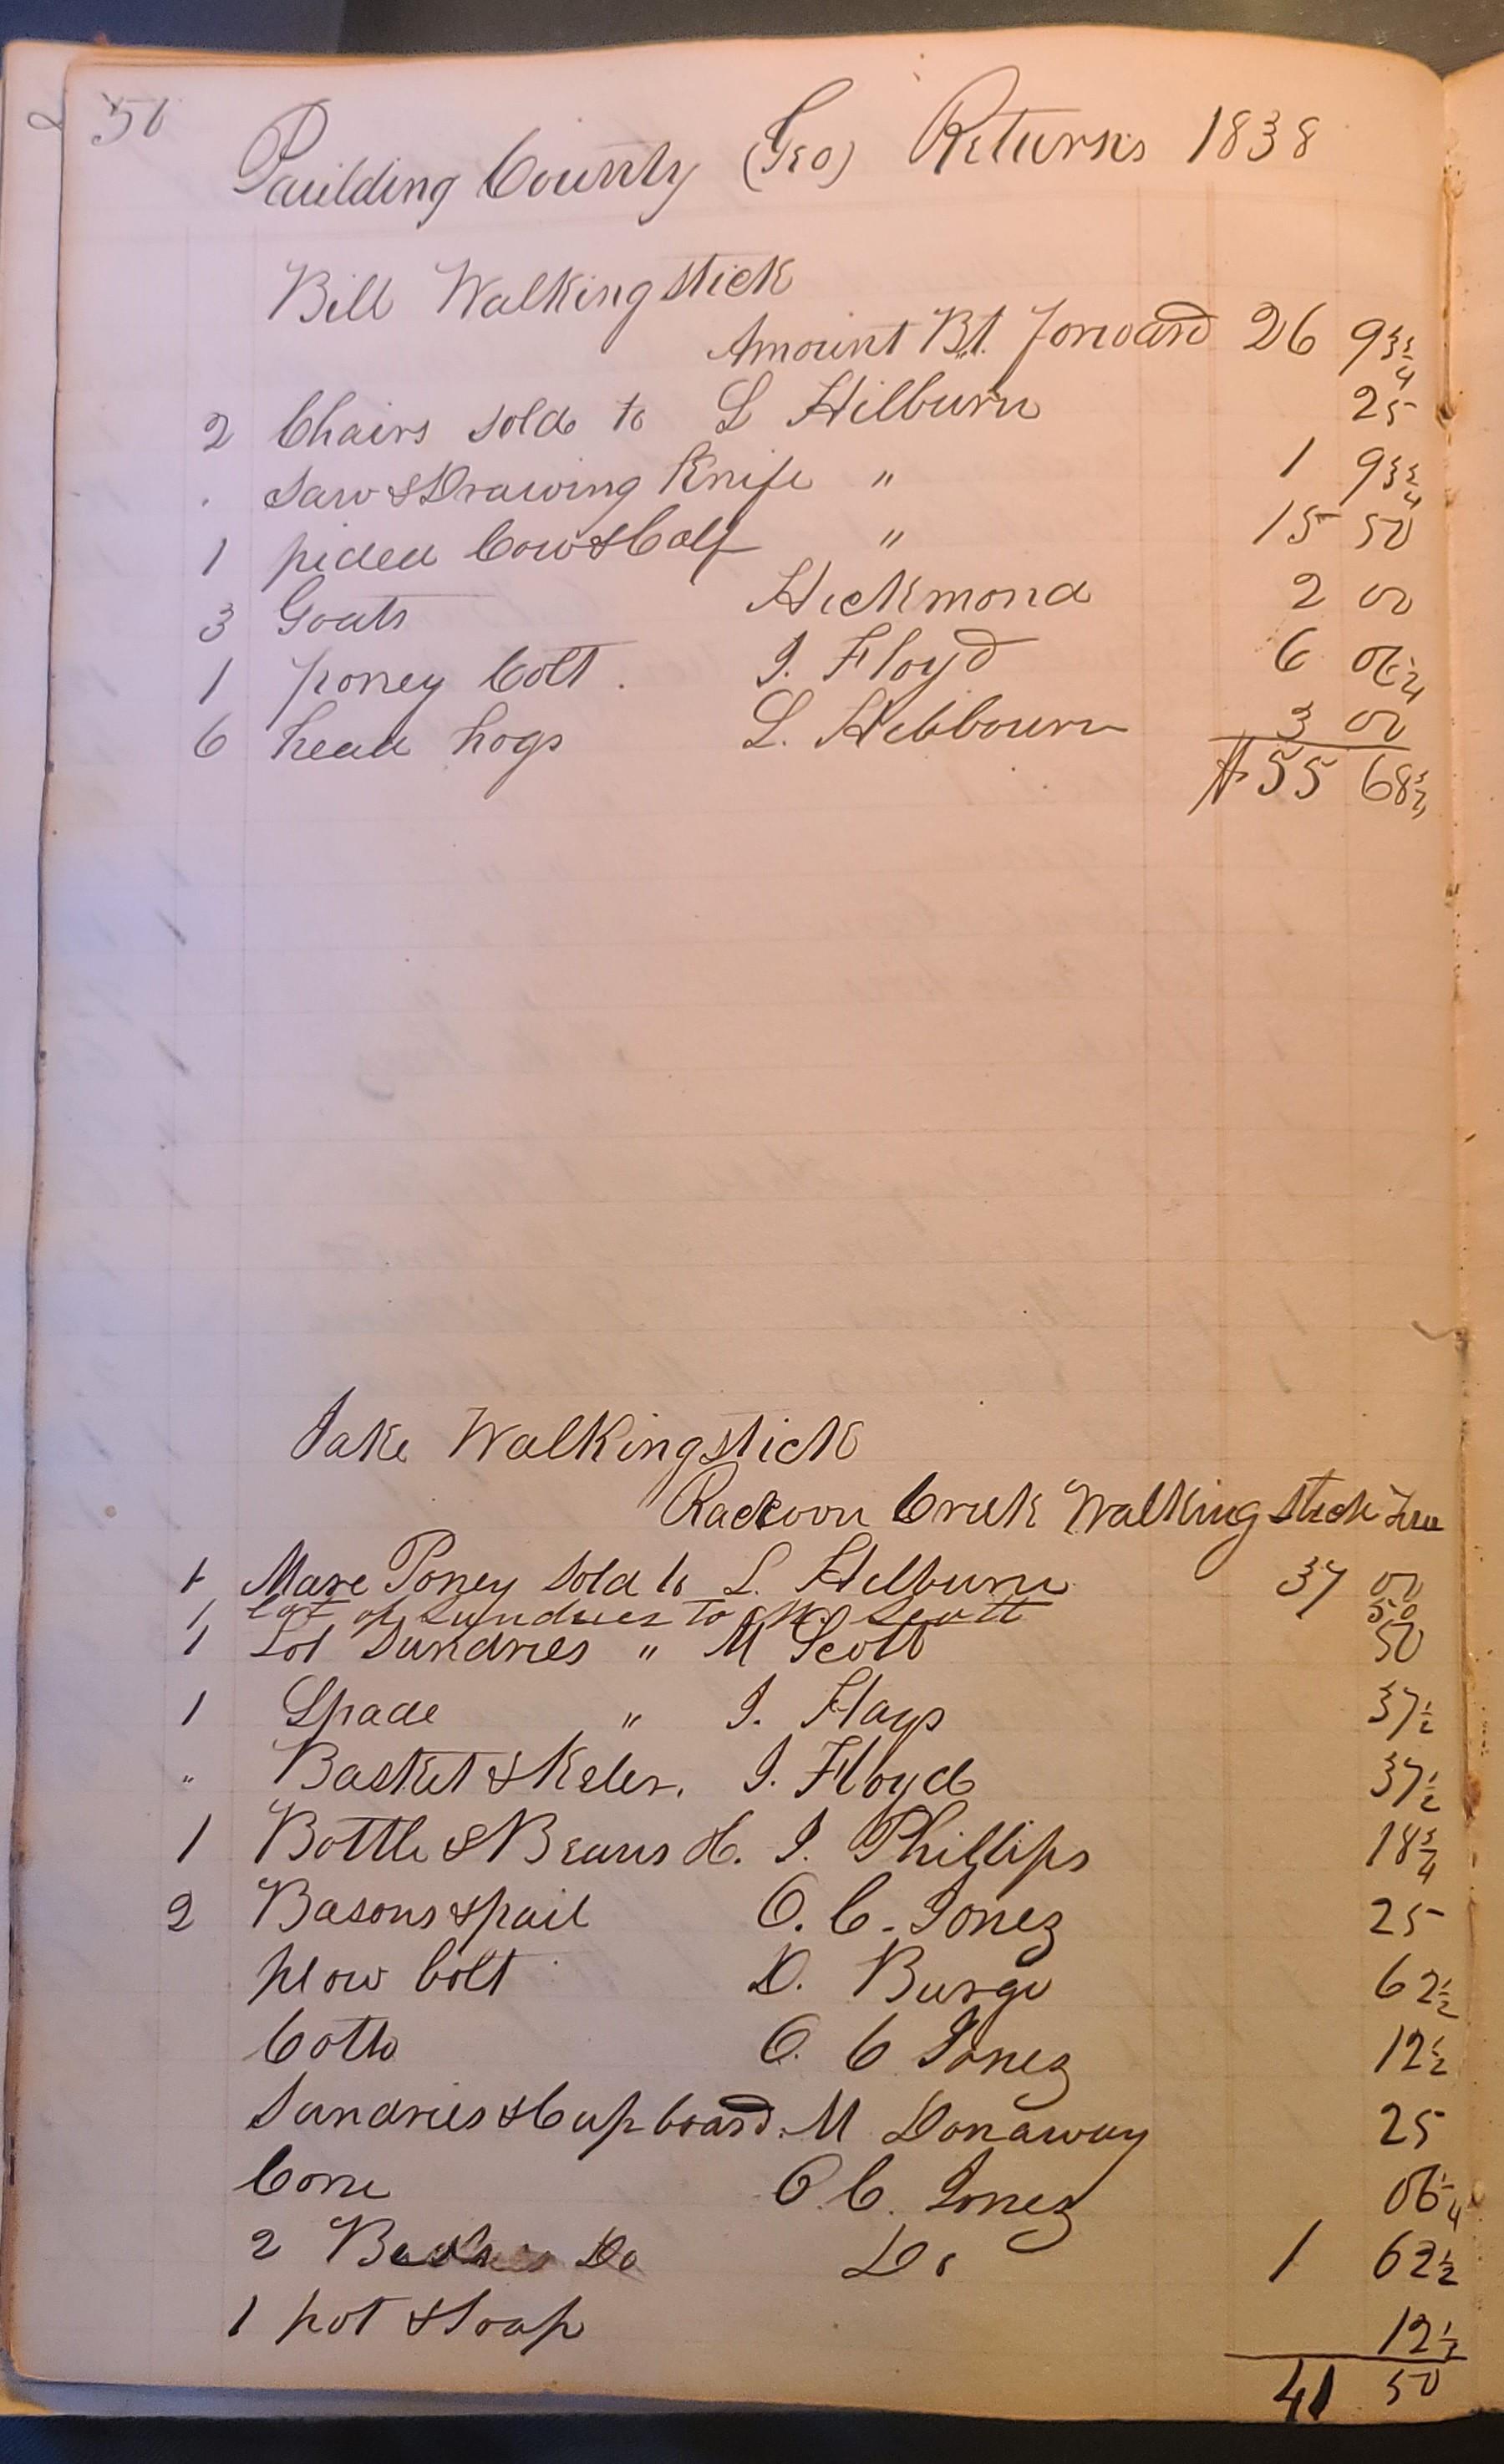 56
Paulding County (Geo) Returns 1838
Bill Walkingstick
Amount Bt. forward 26 93 3/4
2 Chairs sold to L Hilburn 25
. Saw & Drawing Knife " 1 93 3/4
1 pided Cow & Calf " 15 50
3 Goats Hickmond 2 00
1 poney Colt . J. Floyd 6 06 1/4
6 head hogs L. Hilbourn 3 00
$55 68 3/4
Jake Walkingstick
Rackoon Creek Walking Stick
1 Mare Poney Sold to L. Hilburn 37 00
1 Lot of Sundries to M. Scott 50
1 Lot Sundries " M Scott 50
1 Spade " J. Hays 37 1/2
" Basket & Keler. J. Floyd 37 1/2
1 Bottle & Beans H. J. Phillips 18 3/4
2 Basons & pail O. C. Jones 25
plow Colt D. Burge 62 1/2
O. C Jones 12 1/2
Sundries & Cupboard. M Donaway 25
Corn O. C. Jones 06 1/4
2 Do Do 1 62 1/2
1 pot & Soap 12 1/2
41 50